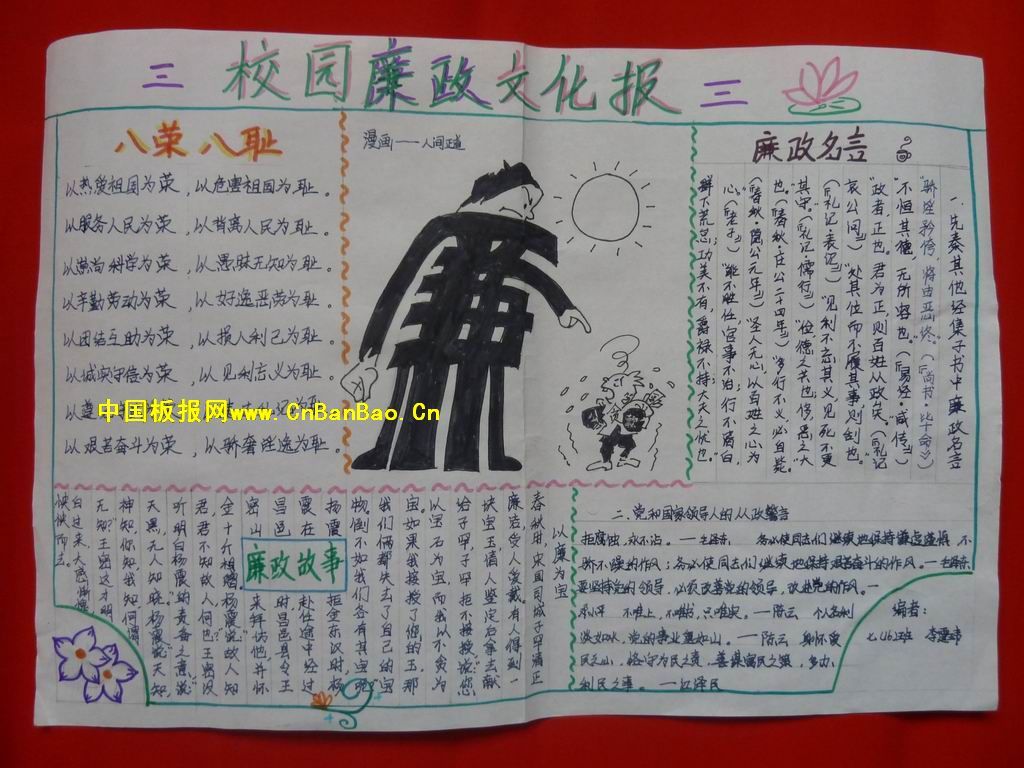 三 校园廉政文化报 三
八荣八耻
以热爱祖国为荣，以危害祖国为耻。
以服务人民为荣，以背离人民为耻。
以崇尚科学为荣，以愚昧无知为耻。
以辛勤劳动为荣，以好逸恶劳为耻。
以团结互助为荣，以损人利己为耻。
以诚实守信为荣，以见利忘义为耻。
以遵
中国板报网www.CnBanBao.Cn
以艰苦奋斗为荣，以骄奢淫逸为耻。
漫画——人间正道
廉政名言
一.先秦其他经集子书中廉政名言
"骄淫矜侉，将由恶终。"(《尚书·毕命》)
"不恒其德，无所容也。"(《易经·咸传》)
"政者，正也。君为正，则百姓从政矣。"(《礼记
哀公问》) "处其位而不履其事则乱也。"
(《礼记·表记》) "见利不忘其义见死不更
其守。"(《礼记·儒行》) "俭，德之共也；侈，恶之大
也。"(《春秋·庄公二十四年》) "多行不义必自毙
"(《春秋·隐公元年》) "圣人无心，以百姓之心为
心。"(《老子》) "能不胜任，官事不治；行不清白
群下荒怠；功美不有，爵禄不持：大夫之忧也。"
以廉为宝
春秋时，宋国司城子罕清正
廉洁，受人爱戴。有人得到一
块宝玉，请人鉴定后拿去献
给子罕，子罕拒不接授，说："您
以宝石为宝，而我以不贪为
宝。如果我接授了您的玉，那
我们俩都失去了自己的
宝物。倒不如我们各有其宝呢"
廉政故事
杨震拒金东汉时，杨
震在赴任途中经过
昌邑时，昌邑县令王
密来拜访他，并怀
金十斤相赠。杨震说："故人知
君，君不知故人何也？"王密没
听明白杨震的责备之意，说：
"天黑，无人知晓。"杨震说："天知，
神知，你知，我知，何谓
无知？"王密这才明
白过来，大感惭愧
怏怏而去。
二.党和国家领导人的从政警言
拒腐蚀，永不沾。——毛泽东 务必使同志们继续地保持谦虚谨慎、不
骄不躁的作风；务必使同志们继续地保持艰苦奋斗的作风。——毛泽东
要坚持党的领导，必须改善党的领导，改进党的作风。—
邓小平 不唯上，不唯书，只唯实。——陈云 个人名利
淡如水，党的事业重如山。——陈云 身怀爱
民之心，恪守为民之责，善谋富民之策，多办
利民之事。——江泽民
编者：
七(6)班